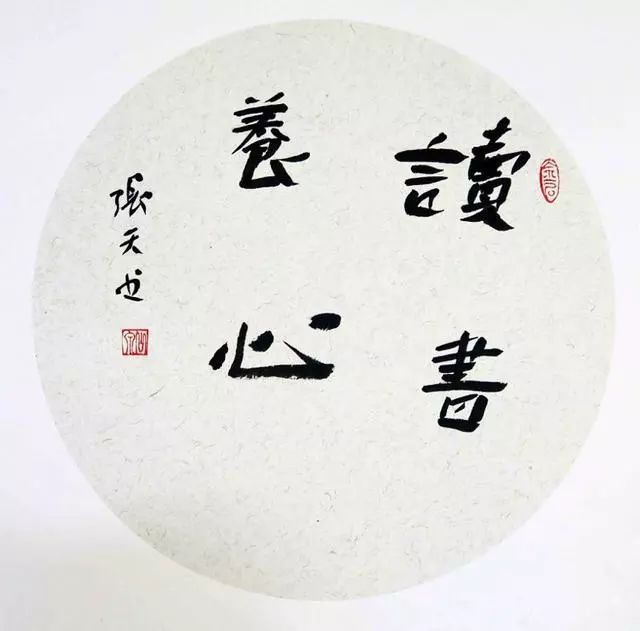 讀書
養心
張天书